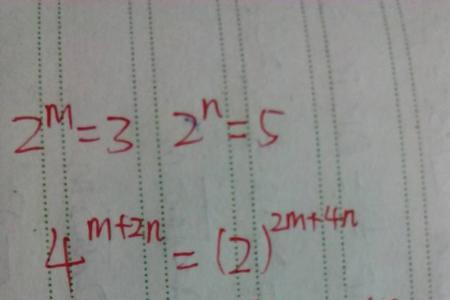 2^m=3 2^n=5
4^{m+2n}=(2)^{2m+4n}